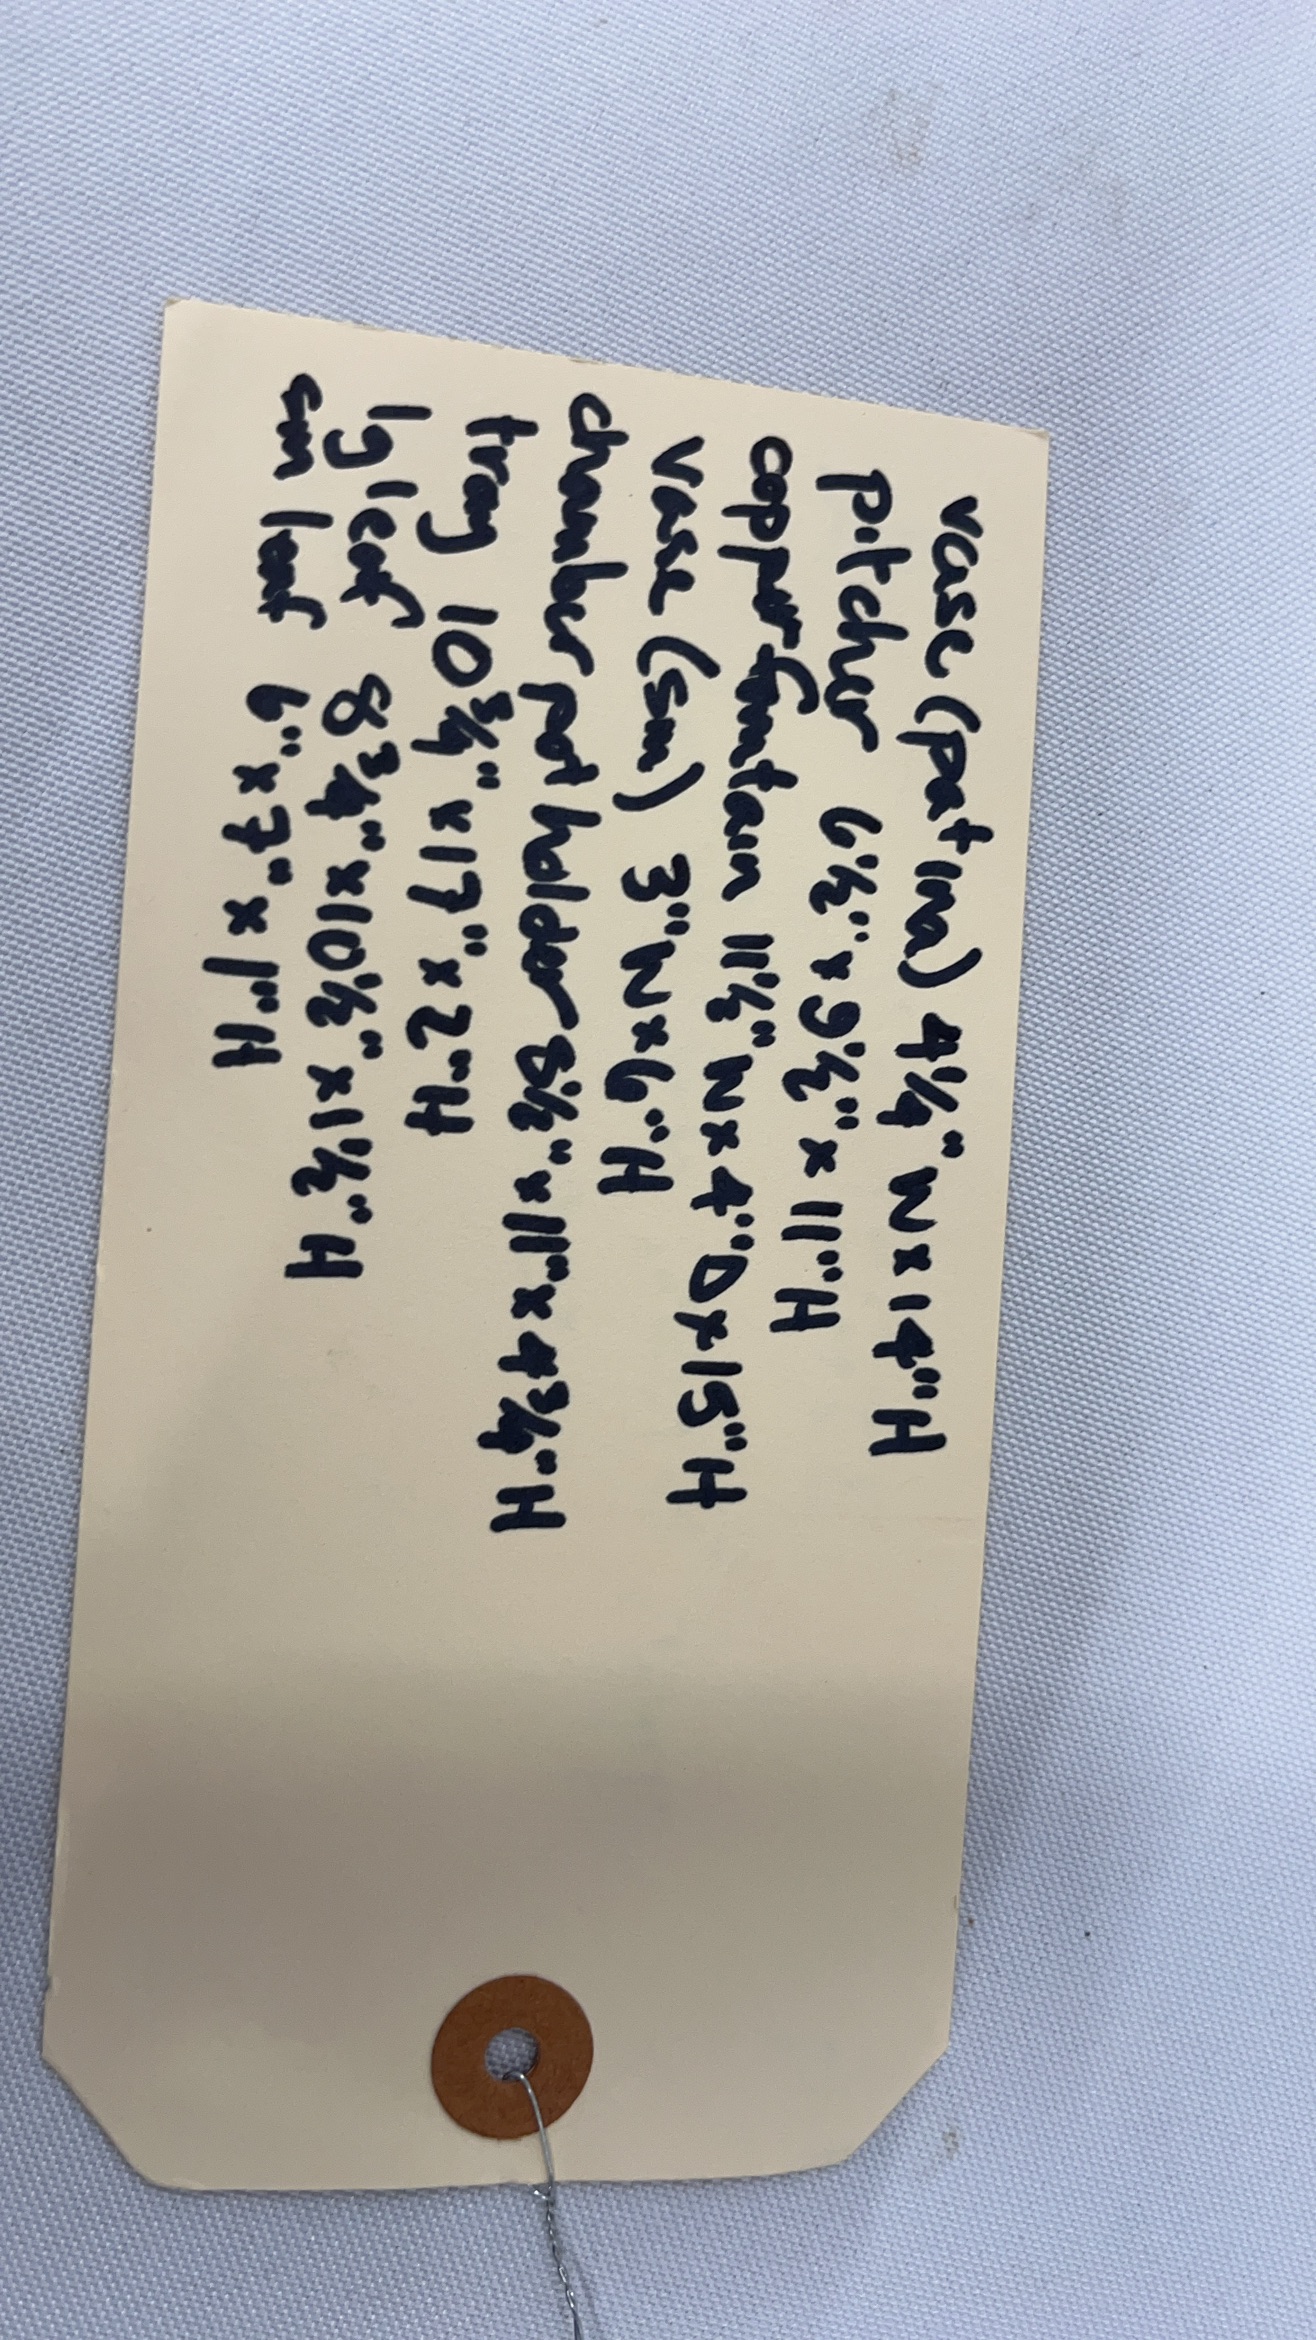 vase (patina) 4¼" W x 14" H
pitcher 6½" x 9½" x 11" H
copper fountain 11½" W x 4" D x 15" H
vase (sm) 3" W x 6" H
chamber pot holder 8½" x 11" x 4¾" H
tray 10¾" x 17" x 2" H
lg leaf 8¾" x 10½" x 1½" H
sm leaf 6" x 7" x 1" H